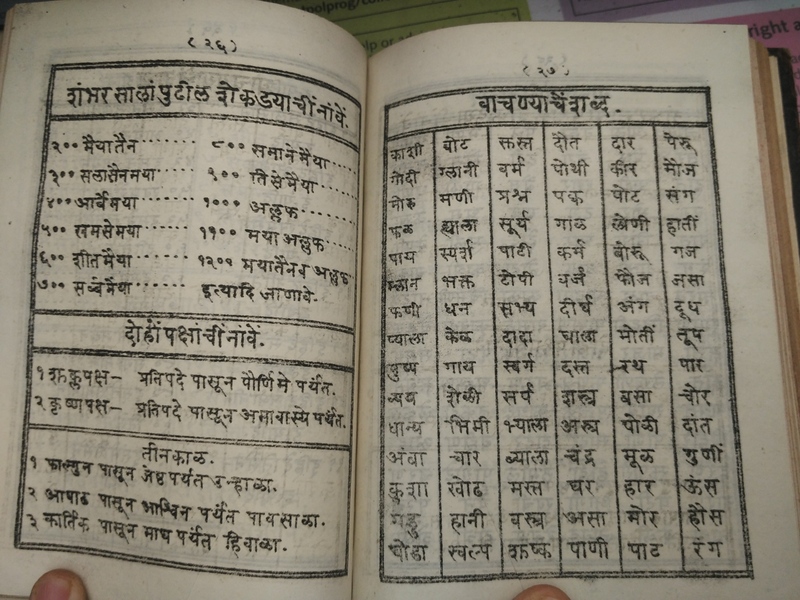 toolprog/com
lp or ad
right a
( २६ )
शंभर सालां पुटील शेकडयाचीं नांवें.
२०० मैयातैन ........ ८०० समानेमैया ......
३०० सलासैनमया ........ ९०० तिसेमैया ........
४०० आर्बैमया ........ १००० अल्लुफ ........
५०० खमसेमया ........ ११०० मया अल्लुफ ......
६०० शीतमैया ........ १२०० मयातैनव अल्लुफ
७०० सब्बमैया ........ इत्यादि जाणावे.
दोहों पक्षांचीं नांवे.
१ शुक्लपक्ष— प्रतिपदे पासून पौर्णिमे पर्यंत.
२ कृष्णपक्ष— प्रतिपदे पासून अमावास्ये पर्यंत.
तीनकाळ.
१ फाल्गुन पासून जेष्ठ पर्यंत उन्हाळा.
२ आषाढ पासून आश्विन पर्यंत पावसाळा.
३ कार्तिक पासून माघ पर्यंत हिवाळा.
( २७ )
वाचण्याचें शब्द.
काशी बोट रूस्त दौत दार पेरू
गोदी ग्लानी वर्म पोथी कीर मौज
मोरू मणी प्रश्न पक पोट संग
फळ ह्याला सूर्य गाळ लोणी हातीं
पाय स्पर्श पाटी कर्म बोरू गज
म्लान भक्त टोपी वर्ज फौज जसा
फणी धन सभ्य दीर्घ अंग दूध
प्याला केळ दादा घाला मोतीं तूप
पुष्प गाय स्वर्ग दस्त रथ पार
व्यय शेळी सर्प शास्त्र बसा चोर
धान्य भिमी भ्याला अस्त्र पोळी दांत
अंबा चार व्याला चंद्र मूळ गुणीं
कुशा खोढ मस्त घर हार ऊंस
गडु हानी वस्त्र असा मोर हौस
घोडा स्वल्प शुष्क पाणी पाट रंग